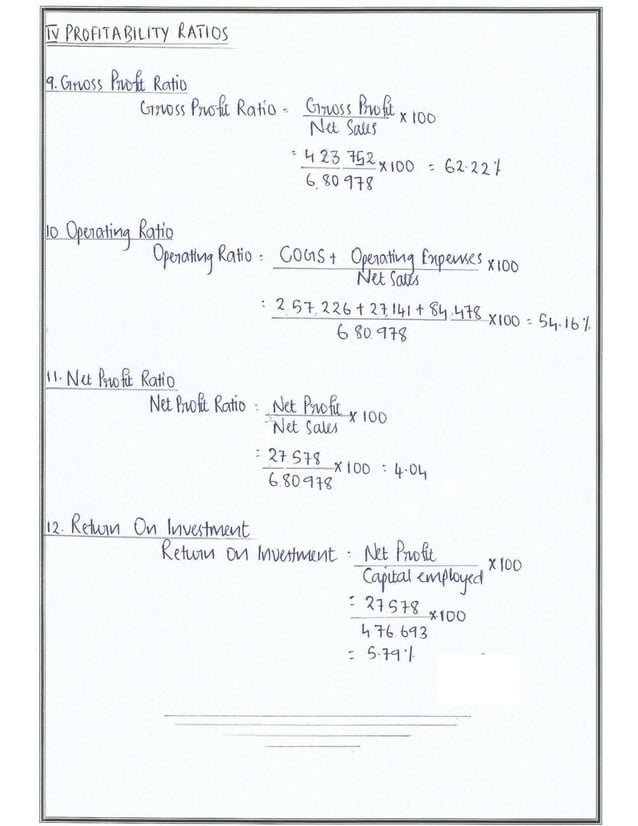 IV PROFITABILITY RATIOS
9. Gross Profit Ratio
Gross Profit Ratio = Gross Profit × 100
Net Sales
= 4 23 752 × 100 = 62.22%
6,80 978
10 Operating Ratio
Operating Ratio = COGS + Operating Expenses × 100
Net Sales
= 2,57,226 + 27,141 + 84,478 × 100 = 54.16%
6 80 978
11. Net Profit Ratio
Net Profit Ratio = Net Profit × 100
Net Sales
= 27 578 × 100 = 4.04
6,80978
12. Return On Investment
Return on Investment = Net Profit × 100
Capital employed
= 27578 × 100
4 76 693
= 5.79%